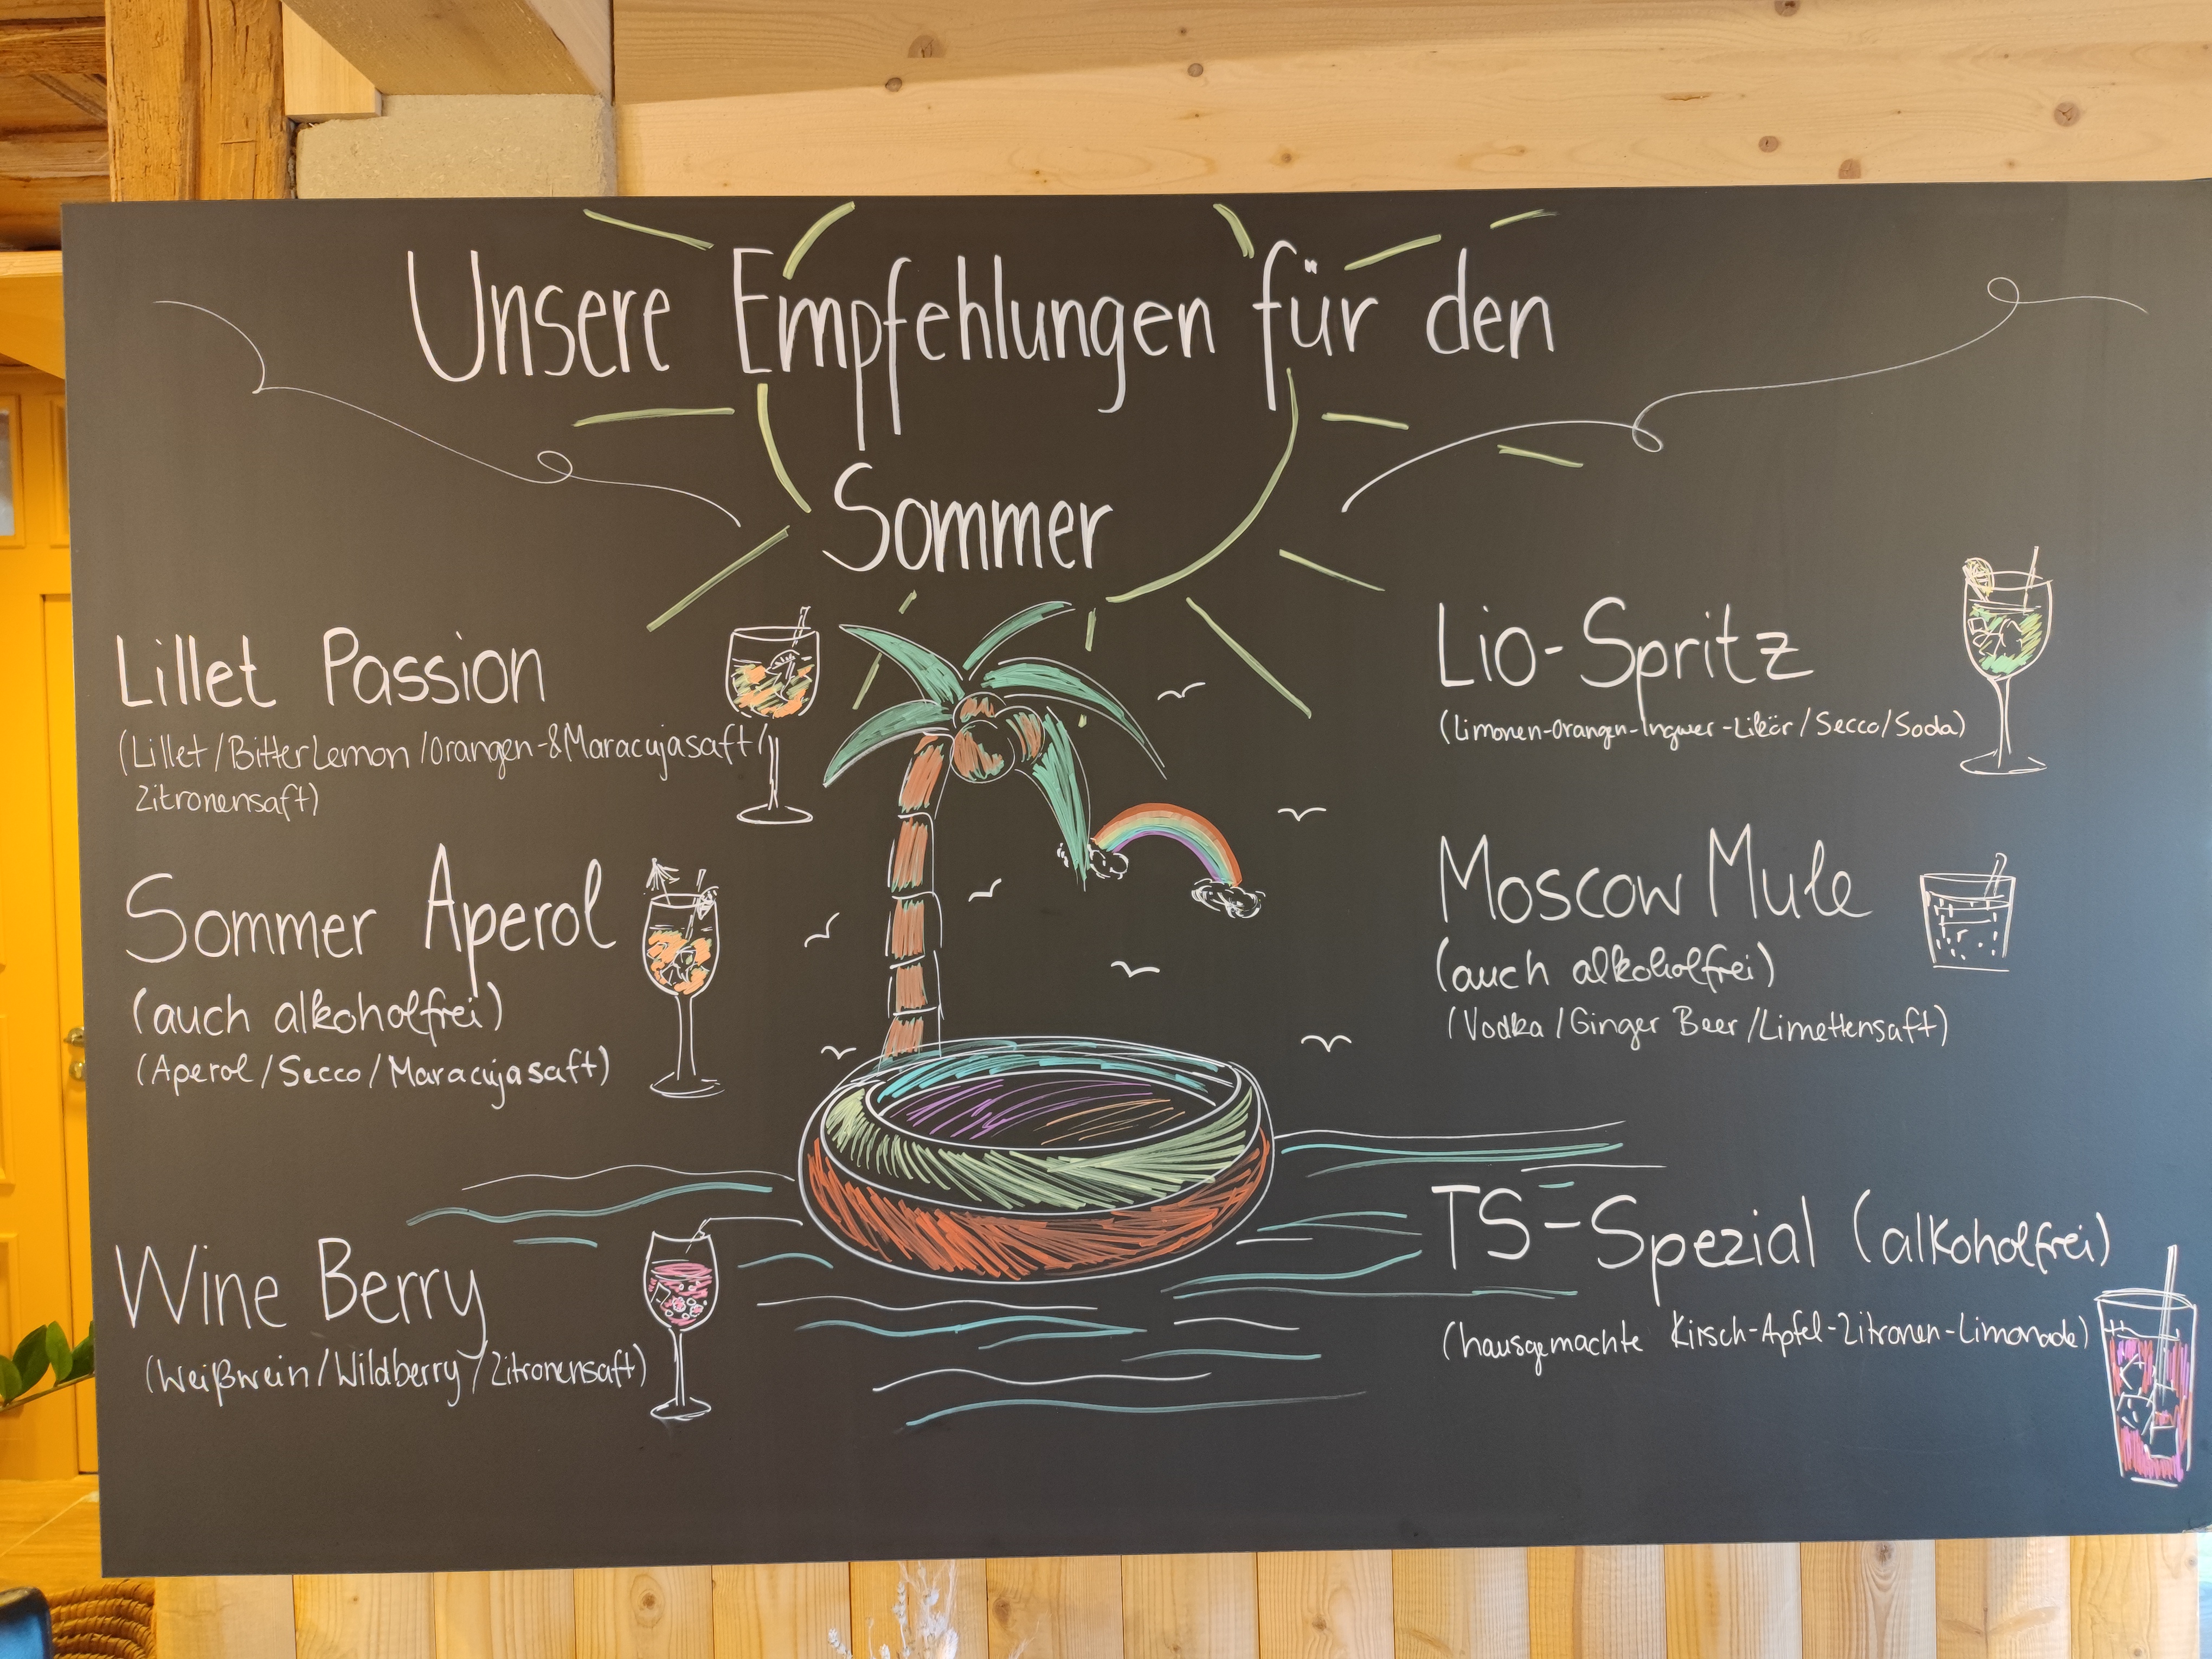 Unsere Empfehlungen für den
Sommer
Lillet Passion
(Lillet/Bitter Lemon/Orangen-&Maracujasaft/
Zitronensaft)
Sommer Aperol
(auch alkoholfrei)
(Aperol/Secco/Maracujasaft)
Wine Berry
(Weißwein/Wildberry/Zitronensaft)
Lio-Spritz
(Limonen-Orangen-Ingwer-Likör/Secco/Soda)
Moscow Mule
(auch alkoholfrei)
(Vodka/Ginger Beer/Limettensaft)
TS-Spezial (alkoholfrei)
(hausgemachte Kirsch-Apfel-Zitronen-Limonade)